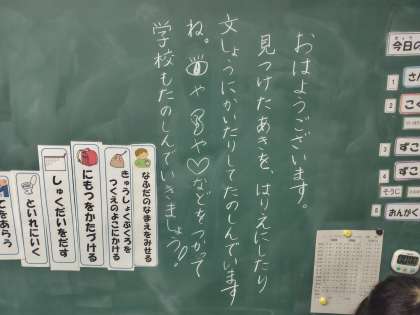 おはようございます。
見つけたあきを、はりえにしたり
文しょうにかいたりしてたのしんでいます
ね。👁や や♡などをつかって
学校もたのしんでいきましょう!!
なふだのなまえをみせる
きゅうしょくぶくろを
つくえのよこにかける
にもつをかたづける
しゅくだいをだす
といれにいく
てをあらう
今日の
1
さん
2
こく
3
ずこ
4
ずこ
そうじ
5
おんがく